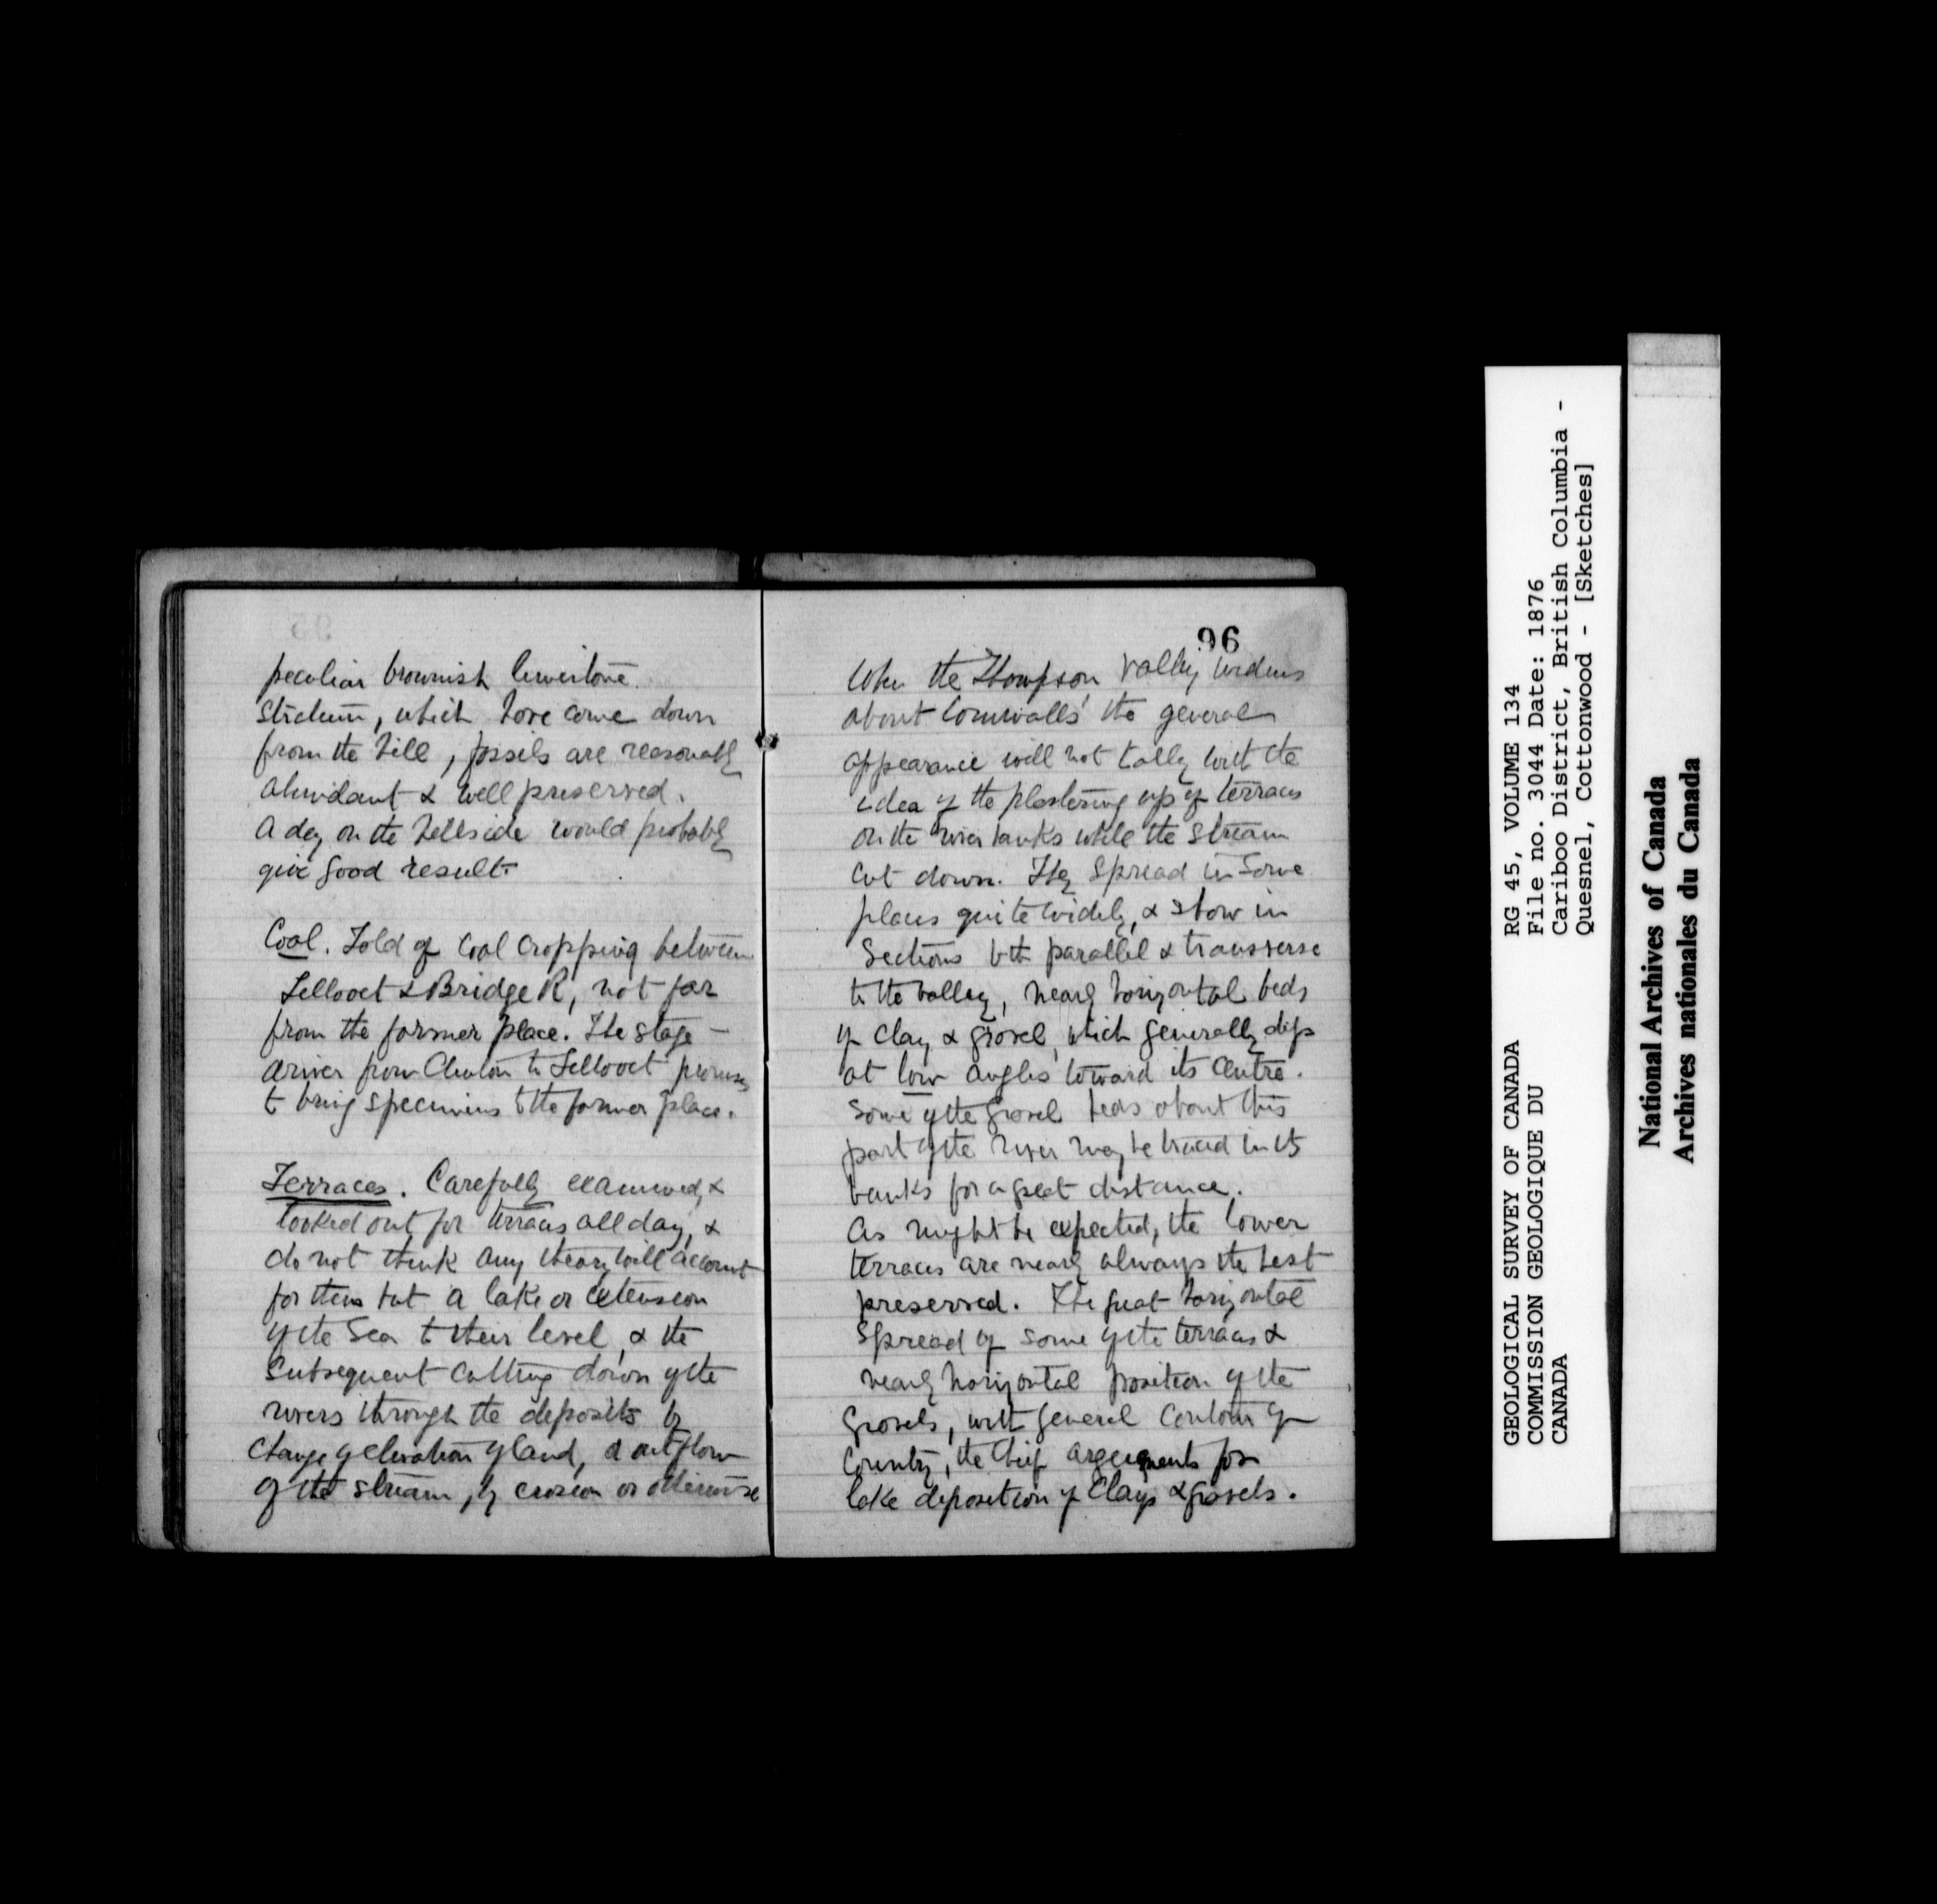 peculiar brownish limestone
stratum, which have come down
from the hill, fossils are reasonably
abundant & well preserved.
A day on the hillside would probably
give good result.
Coal. Told of Coal Cropping between
Lillooet & Bridge R, not far
from the former place. The stage
driver from Clinton to Lillooet promises
to bring specimens to the former place.
Terraces. Carefully examined, &
looked out for terraces all day, &
do not think any theory will account
for them but a lake or extension
of the Sea to their level, & the
Subsequent cutting down of the
rivers through the deposits by
change of elevation of land, & outflow
of the stream, by erosion or otherwise
96
When the Thompson Valley widens
about Cornwalls' the general
appearance will not tally with the
idea of the plastering up of terraces
on the river banks while the stream
cut down. They Spread in Some
places quite widely, & show in
Sections both parallel & transverse
to the valley, nearly horizontal beds
of Clay & gravel, which generally dip
at low angles toward its Centre.
Some of the gravel beds about this
part of the river may be traced in its
banks for a great distance.
As might be expected, the lower
terraces are nearly always the best
preserved. The great horizontal
Spread of some of the terraces &
nearly horizontal position of the
Gravels, with general Contour of
Country, the chief arguments for
lake deposition of Clays & gravels.
GEOLOGICAL SURVEY OF CANADA
COMMISSION GEOLOGIQUE DU
CANADA
RG 45, VOLUME 134
File no. 3044 Date: 1876
Cariboo District, British Columbia -
Quesnel, Cottonwood - [Sketches]
National Archives of Canada
Archives nationales du Canada